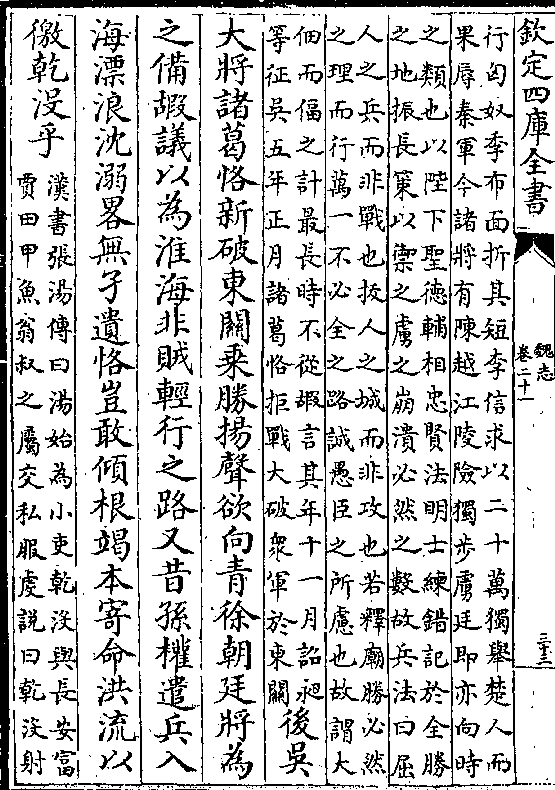 欽定四庫全書
魏志
卷二十一
三十三
行匈奴季布面折其短李信求以二十萬獨舉楚人而
果辱秦軍今諸將有陳越江陵險獨步虜廷即亦向時
之類也以陛下聖德輔相忠賢法明士練錯記於全勝
之地振長策以禦之虜之崩潰必然之數故兵法曰屈
人之兵而非戰也拔人之城而非攻也若釋廟勝必然
之理而行萬一不必全之路誠愚臣之所慮也故謂大
佃而偪之計最長時不從嘏言其年十一月詔昶
等征吳五年正月諸葛恪拒戰大破衆軍於東關
後吳
大將諸葛恪新破東關乗勝揚聲欲向青徐朝廷將為
之備嘏議以為淮海非賊輕行之路又昔孫權遣兵入
海漂浪沈溺畧無孑遺恪豈敢傾根竭本寄命洪流以
徼乾没乎
漢書張湯傳曰湯始為小吏乾没與長安富
賈田甲魚翁叔之屬交私服虔説曰乾没射